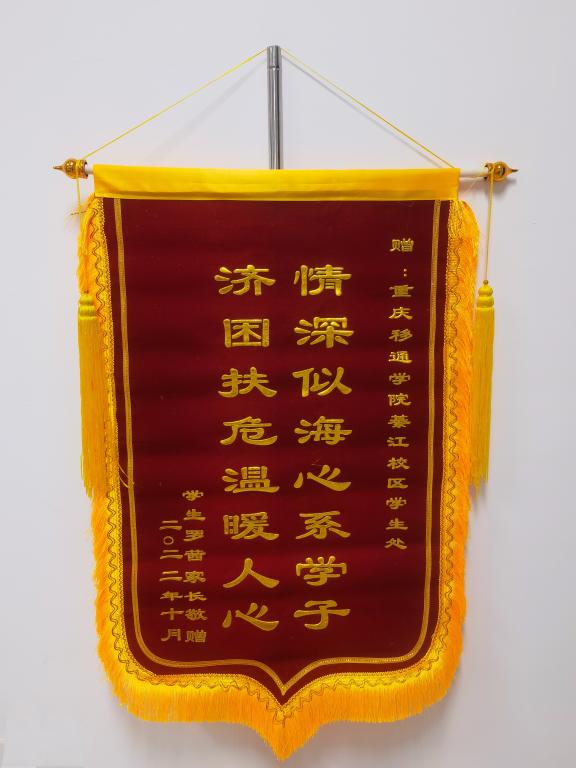 赠：重庆移通学院綦江校区学生处
情深似海心系学子
济困扶危温暖人心
学生罗茴家长敬赠
二〇二二年十月